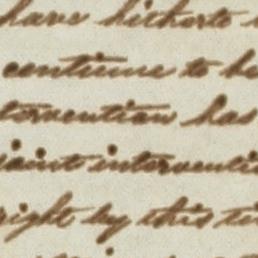 have hitherto
continue to be
tervention has
joint interventi
right by this ti